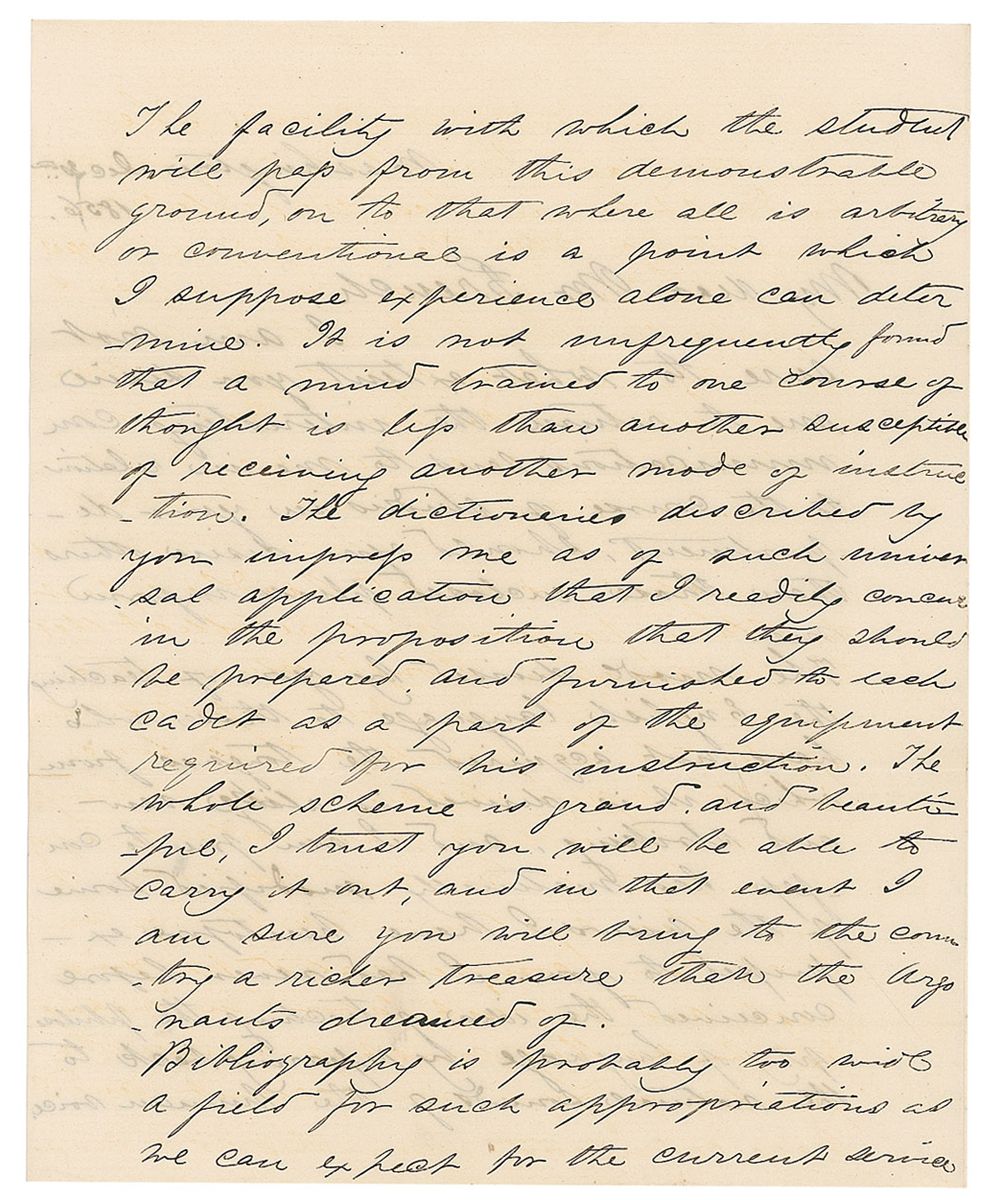 The facility with which the student
will pass from this demonstrable
ground, on to that where all is arbitrary
or conventional is a point which
I suppose experience alone can deter
-mine. It is not unfrequently found
that a mind trained to one course of
thought is less than another susceptible
of receiving another mode of instruc
-tion. The dictioneries described by
you impress me as of such univer
-sal application that I readily concur
in the proposition that they should
be prepared, and furnished to each
cadet as a part of the equipment
required for his instruction. The
whole scheme is grand, and beauti-
-ful, I trust you will be able to
carry it out, and in that event I
am sure you will bring to the coun
-try a richer treasure than the Argo
-nauts dreamed of.
Bibliography is probably too wide
a field for such appropriations as
we can expect for the current service